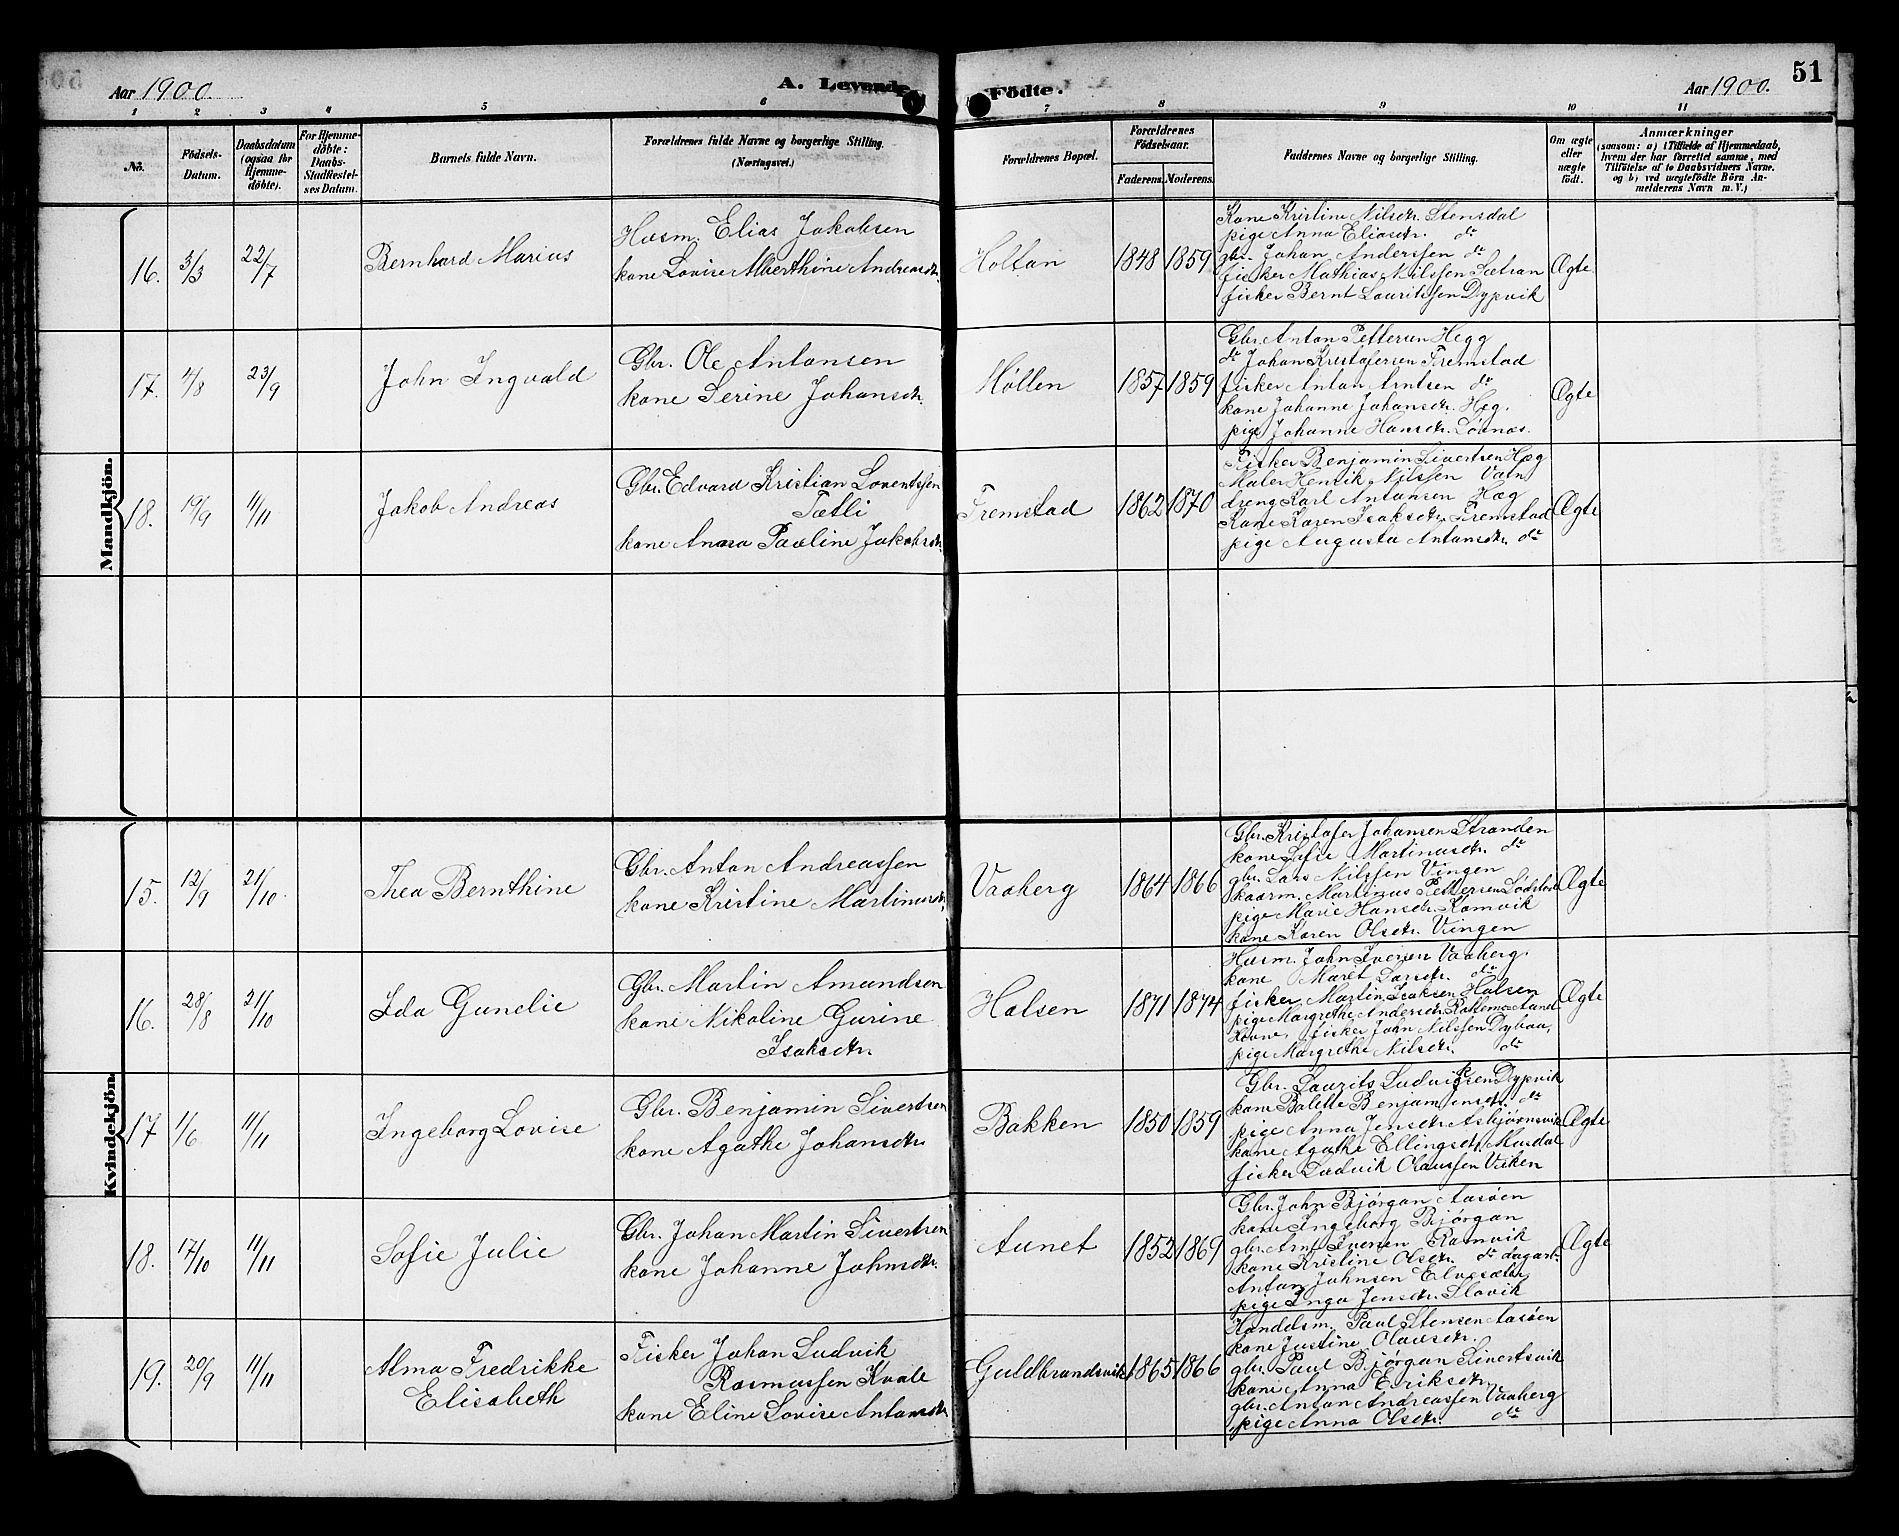 Aar 1900.
A. Levende Fødte.
Aar 1900.
51
1 2 3 4 5 6 7 8 9 10 11
No.
Fødsels-Datum.
Daabsdatum (ogsaa for Hjemmedøbte).
For Hjemmedøbte: Daabs-Stadfæstelses Datum.
Barnets fulde Navn.
Forældrenes fulde Navne og borgerlige Stilling. (Næringsvei.)
Forældrenes Bopæl.
Forældrenes Fødselsaar.
Faderens. Moderens.
Faddernes Navne og borgerlige Stilling.
Om ægte eller uægte født.
Anmærkninger
(saasom: a) i Tilfælde af Hjemmedaab, hvem der har forrettet samme, med Tilføielse af to Daabsvidners Navne. og b) ved uægtefødte Børn Anmelderens Navn m. V.)
Mandkjön.
16. 3/3 22/7 Bernhard Marius
Husm. Elias Jakobsen
kone Lovise Alberthine Andreasdtr.
Holtan 1848 1859
Kone Kristine Nilsdtr. Stensdal
pige Anna Eliasdtr. do
gbr. Johan Anderssen do
fisker Mathias Nilssen Sætran
fisker Bernt Lauritssen Dypvik
Ægte
17. 4/8 23/9 John Ingvald
Gbr. Ole Antonsen
kone Serine Johansdtr.
Høllen 1857 1859
Gbr. Anton Pettersen Hegg
do Johan Kristofersen Fremstad
fisker Anton Arntsen do
kone Johanne Johansdtr. Heg.
pige Johanne Hansdtr. Løvnæs.
Ægte
18. 19/9 11/11 Jakob Andreas
Gbr. Edvard Kristian Lorentssen
Tætli
kone Anna Pauline Jakobsdtr.
Fremstad 1862 1870
Fisker Benjamin Sivertsen Hæg
Maler Henrik Nilssen Vatn
dreng Karl Antonsen Hæg
Kone Karen Isaksdtr. Fremstad
pige Augusta Antonsdtr. do
Ægte
Kvindekjön.
15. 12/9 21/10. Thea Bernthine
Gbr. Anton Andreassen
kone Kristine Martinusdtr.
Vaaberg 1864 1866
Gbr. Kristofer Johansen Stranden
kone Sofie Martinusdtr. do
gbr. Lars Nilssen Vingen
Martinus Pettersen
pige Marie Hansdtr. Ramvik
kone Karen Olsdtr. Vingen
Ægte
16. 28/8 21/10 Ida Gunelie
Gbr. Martin Amundsen
kone Nikoline Gurine
Isaksdtr.
Halsen 1871 1874
Husm. John Iversen Vaaberg.
kone Maret Larsdtr. do
fisker Martin Isaksen Halsen
pige Margrethe Andersdtr.
fisker John Nilssen
pige Margrethe Nilsdtr. do
Ægte
17 1/6 11/11 Ingeborg Lovise
Gbr. Benjamin Sivertsen
kone Agathe Johansdtr
Bakken 1850 1859
Gbr. Laurits Ludviksen Dypvik
kone Balette Benjaminsdtr. do
pige Anna Jensdtr. Asbjørnsvik
kone Agathe Ellingsdtr. Mosdal
fisker Ludvik Olaussen Viken
Ægte
18. 17/10 11/11 Sofie Julie
Gbr. Johan Martin Sivertsen
kone Johanne Johnsdtr.
Aunet 1852 1869
Gbr. John Bjørgan Aasøen
kone Ingeborg Bjørgan
gbr. Arnt Iversen Ramvik
kone Kristine Olsdtr. do dagarb.
Anton Johnsen Elvesæter
pige Inga Jensdtr. Slavik
Ægte
19. 20/9 11/11 Alma Fredrikke
Elisabeth
Fisker Johan Ludvik
Rasmussen Kvale
kone Eline Lovise Antonsdtr
Guldbrandsvik 1865 1866
Handelsm. Paul Stensen Aasøen
kone Justine Olausdtr.
gbr. Paul Bjørgan Sivertsvik
kone Anna Eriksdtr.
gbr. Anton Andreassen Vaaberg
pige Anna Olsdtr. do